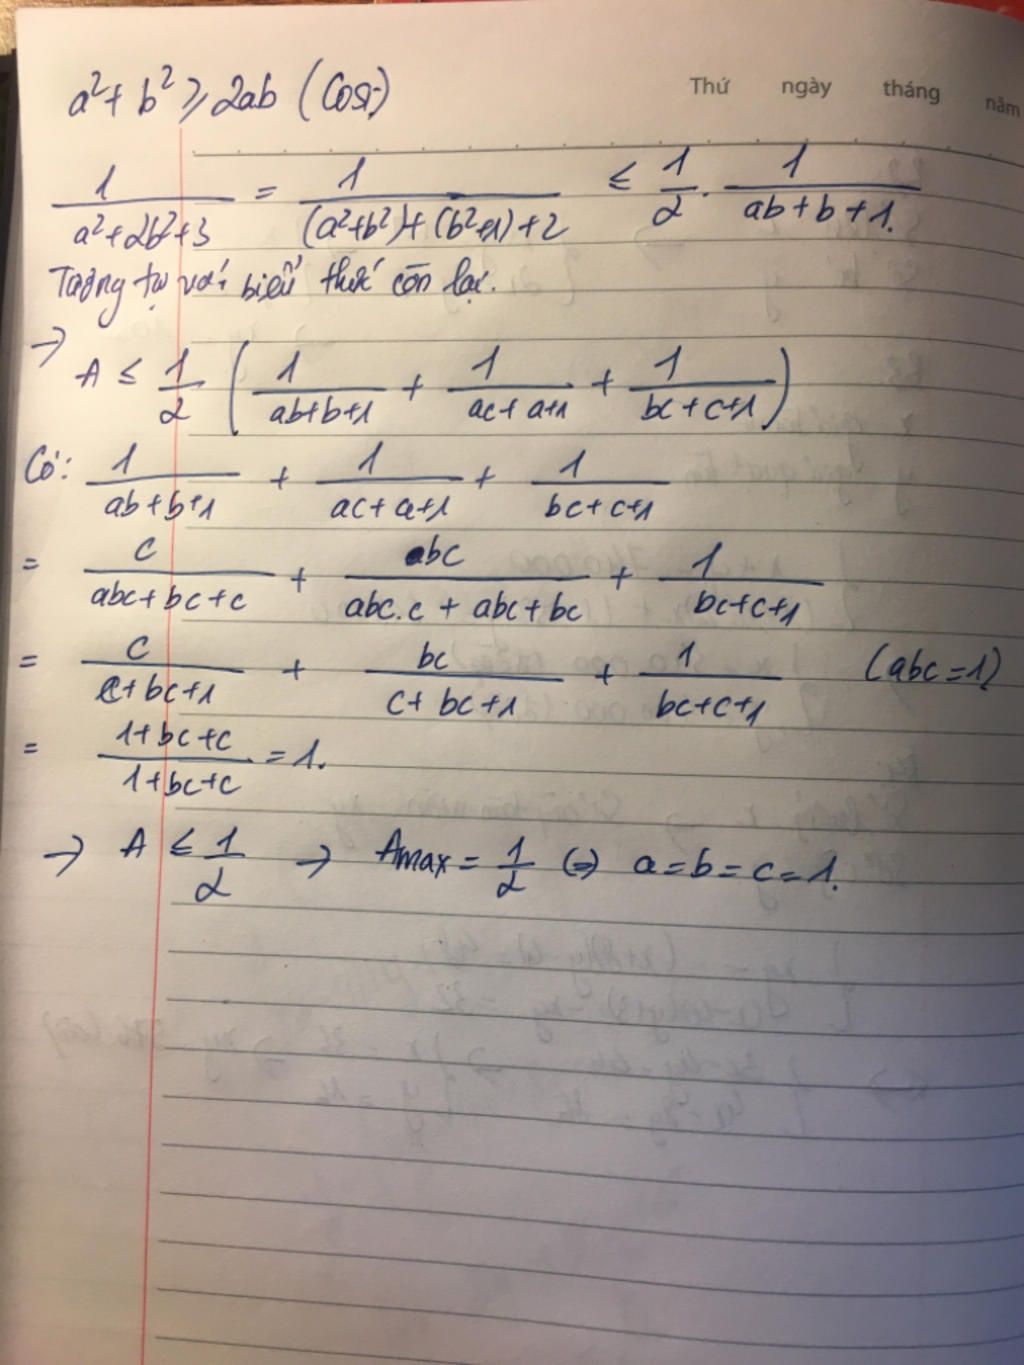 Thứ ngày tháng năm
a² + b² ≥ 2ab (Cosi)
1/(a²+2b²+3) = 1/((a²+b²)+(b²+1)+2) ≤ 1/2 . 1/(ab+b+1).
Tương tự với biểu thức còn lại.
→ A ≤ 1/2 (1/(ab+b+1) + 1/(ac+a+1) + 1/(bc+c+1))
Có: 1/(ab+b+1) + 1/(ac+a+1) + 1/(bc+c+1)
= c/(abc+bc+c) + abc/(abc.c + abc+bc) + 1/(bc+c+1)
= c/(c+bc+1) + bc/(c+bc+1) + 1/(bc+c+1) (abc=1)
= (1+bc+c)/(1+bc+c) = 1.
→ A ≤ 1/2 → Amax = 1/2 (=) a=b=c=1.